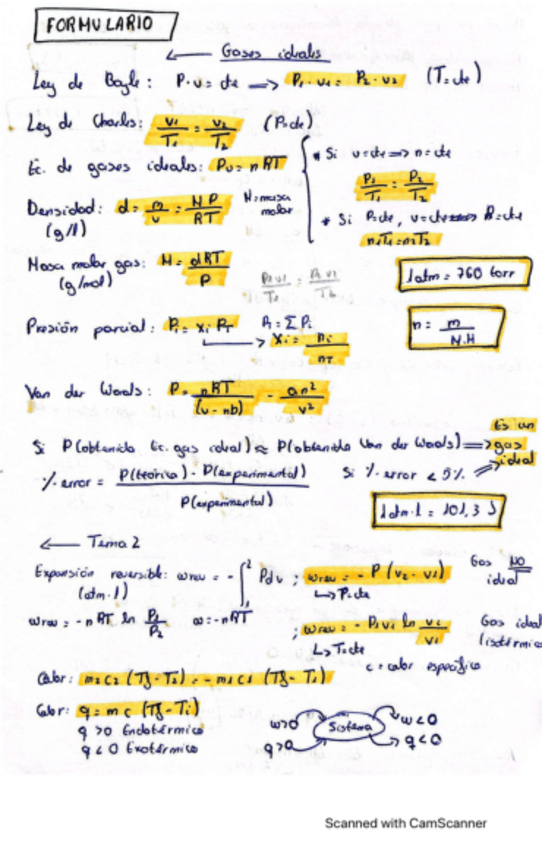 FORMULARIO
← Gases ideales
Ley de Boyle: P·v = cte => P₁·v₁ = P₂·v₂ (T=cte)
Ley de Charles: v₁/T₁ = v₂/T₂ (P=cte)
Ec. de gases ideales: Pv = nRT
* Si v=cte => n=cte
P₁/T₁ = P₂/T₂
Densidad: d = m/v = MP/RT M=masa molar
(g/l)
* Si P=cte, v=cte => R=cte
n₁T₁=n₂T₂
Masa molar gas: M = dRT/P
(g/mol)
P₁v₁/T₁ = P₂v₂/T₂
1atm = 760 torr
Presión parcial: Pᵢ = xᵢ P_T Pₜ = Σ Pᵢ
→ xᵢ = nᵢ/n_T
n = m/M.M
Van der Waals: P = nRT/(v-nb) - an²/v²
Si P(obtenida Ec. gas ideal) ≈ P(obtenida Van der Waals) => Es un gas ideal
% error = P(teórica) - P(experimental) / P(experimental) Si % error < 5% =>
1atm·l = 101,3 J
← Tema 2
Expansión reversible: wrev = -∫₁² Pdv ; wrev = -P(v₂-v₁) Gas NO ideal
(atm·l) → P=cte
wrev = -nRT ln P₁/P₂ w=-nRT ; wrev = -P₁v₁ ln v₂/v₁ Gas ideal (isotérmico
→ T=cte
c = calor específico
Calor: m₂c₂ (Tf-T₂) = -m₁c₁ (Tf-T₁)
Calor: q = m c (Tf-Ti)
q >0 Endotérmico
q <0 Exotérmico
w>0 Sistema w<0
q>0 q<0
Scanned with CamScanner